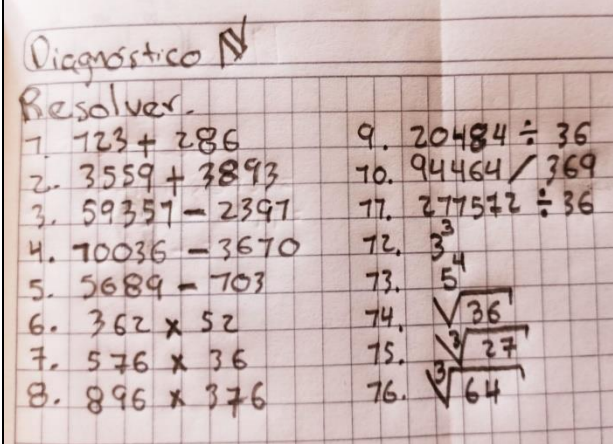 Diagnóstico
Resolver.
1. 123 + 286
2. 3559 + 3893
3. 59351 - 2391
4. 10036 - 3610
5. 5689 - 103
6. 362 x 52
7. 576 x 36
8. 896 x 376
9. 20484 ÷ 36
10. 94464 / 369
11. 211572 ÷ 36
12. 3³
13. 5⁴
14. √36
15. ³√27
16. ³√64